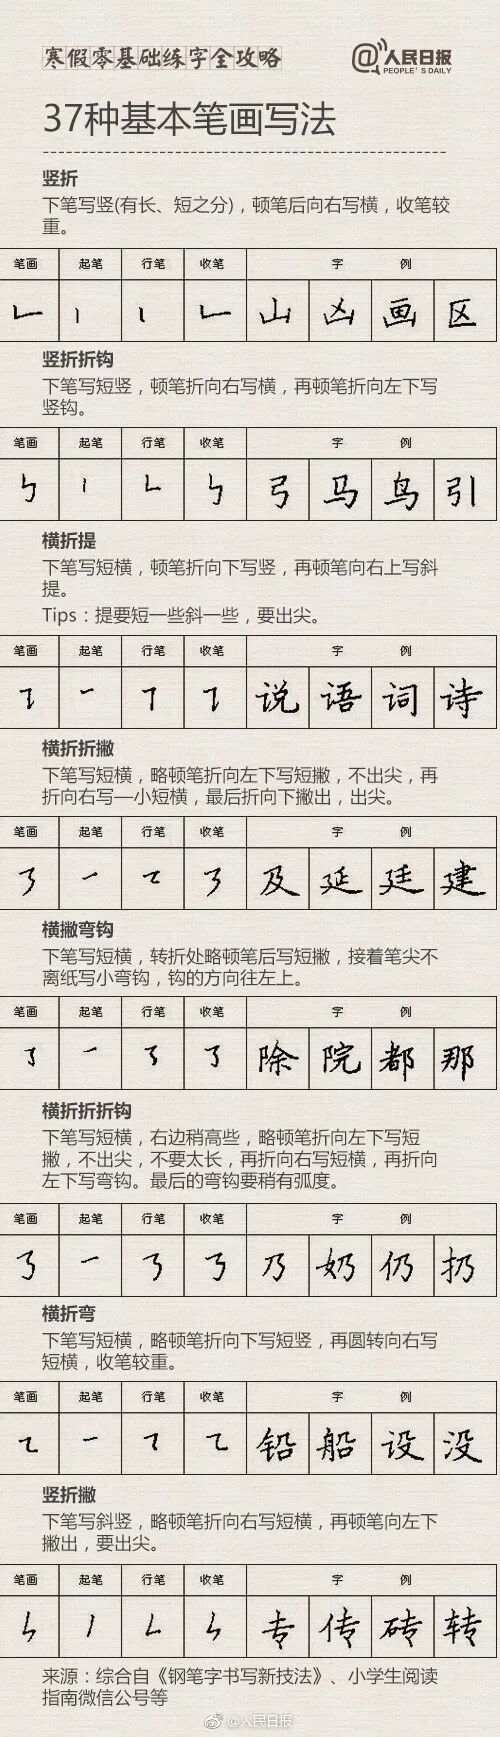 寒假零基础练字全攻略
@人民日报
PEOPLE'S DAILY
37种基本笔画写法
竖折
下笔写竖(有长、短之分)，顿笔后向右写横，收笔较
重。
笔画 起笔 行笔 收笔 字 例
山 凶 画 区
竖折折钩
下笔写短竖，顿笔折向右写横，再顿笔折向左下写
竖钩。
笔画 起笔 行笔 收笔 字 例
弓 马 鸟 引
横折提
下笔写短横，顿笔折向下写竖，再顿笔向右上写斜
提。
Tips：提要短一些斜一些，要出尖。
笔画 起笔 行笔 收笔 字 例
说 语 词 诗
横折折撇
下笔写短横，略顿笔折向左下写短撇，不出尖，再
折向右写一小短横，最后折向下撇出，出尖。
笔画 起笔 行笔 收笔 字 例
及 延 廷 建
横撇弯钩
下笔写短横，转折处略顿笔后写短撇，接着笔尖不
离纸写小弯钩，钩的方向往左上。
笔画 起笔 行笔 收笔 字 例
除 院 都 那
横折折折钩
下笔写短横，右边稍高些，略顿笔折向左下写短
撇，不出尖，不要太长，再折向右写短横，再折向
左下写弯钩。最后的弯钩要稍有弧度。
笔画 起笔 行笔 收笔 字 例
乃 奶 仍 扔
横折弯
下笔写短横，略顿笔折向下写短竖，再圆转向右写
短横，收笔较重。
笔画 起笔 行笔 收笔 字 例
铅 船 设 没
竖折撇
下笔写斜竖，略顿笔折向右写短横，再顿笔向左下
撇出，要出尖。
笔画 起笔 行笔 收笔 字 例
专 传 砖 转
来源：综合自《钢笔字书写新技法》、小学生阅读
指南微信公号等
@人民日报